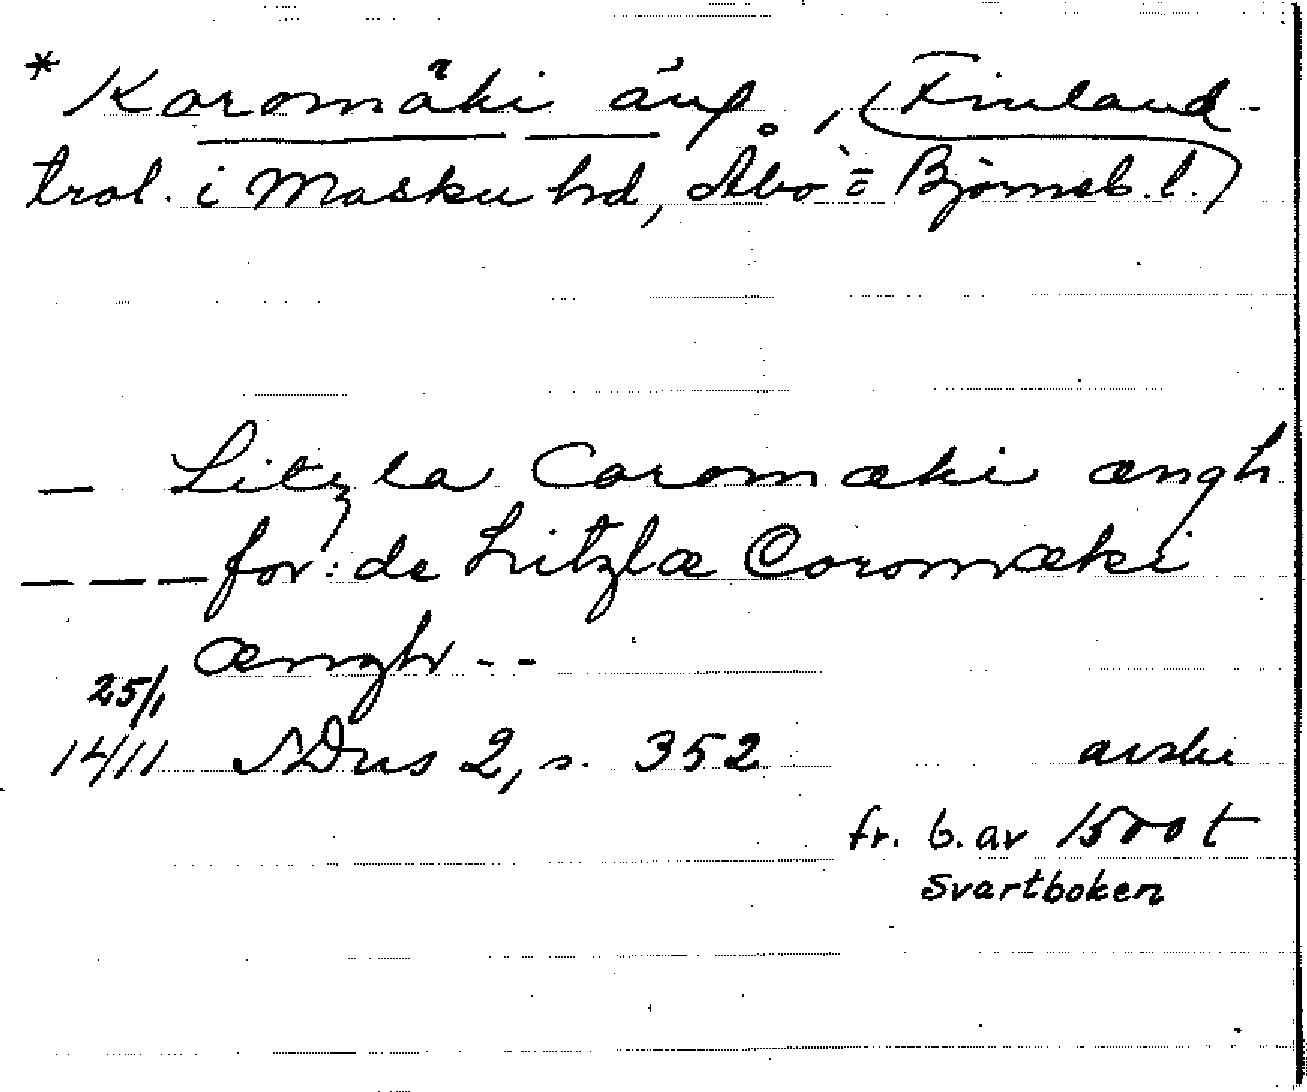 * Koromäki äng. , (Finland -
trol. i Masku hd, Åbo = Björneb. l.)
— Litzla Coromæki ængh
— — — for: de Litzlæ Coromæki
ængh - -
25/1
14/11 SDns 2, s. 352 avskr
fr. b. av 1500 t
Svartboken